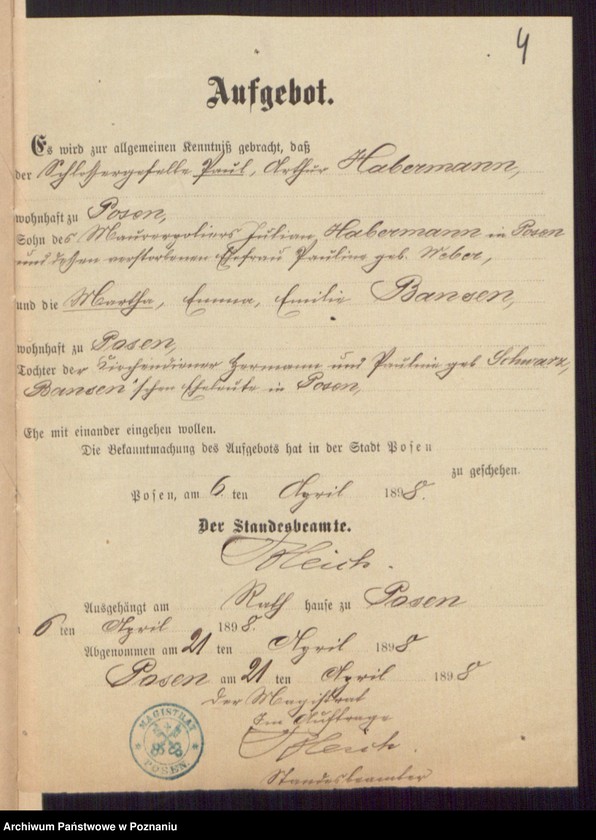 4
Aufgebot.
Es wird zur allgemeinen Kenntniß gebracht, daß
der Schlossergeselle Paul, Arthur Habermann,
wohnhaft zu Posen,
Sohn des Maurerpoliers Julian Habermann in Posen
und dessen verstorbenen Ehefrau Pauline geb. Weber,
und die Martha, Emma, Emilie Bansen,
wohnhaft zu Posen,
Tochter der Kirchendiener Hermann und Pauline geb Schwarz,
Bansen'schen Eheleute in Posen,
Ehe mit einander eingehen wollen.
Die Bekanntmachung des Aufgebots hat in der Stadt Posen
zu geschehen.
Posen, am 6. ten April 1898.
Der Standesbeamte.
Ausgehängt am Rath hause zu Posen
6 ten April 1898.
Abgenommen am 21 ten April 1898
Posen am 21 ten April 1898
Der Magistrat
Im Auftrage
Standesbeamter
MAGISTRAT
POSEN.
Archiwum Państwowe w Poznaniu